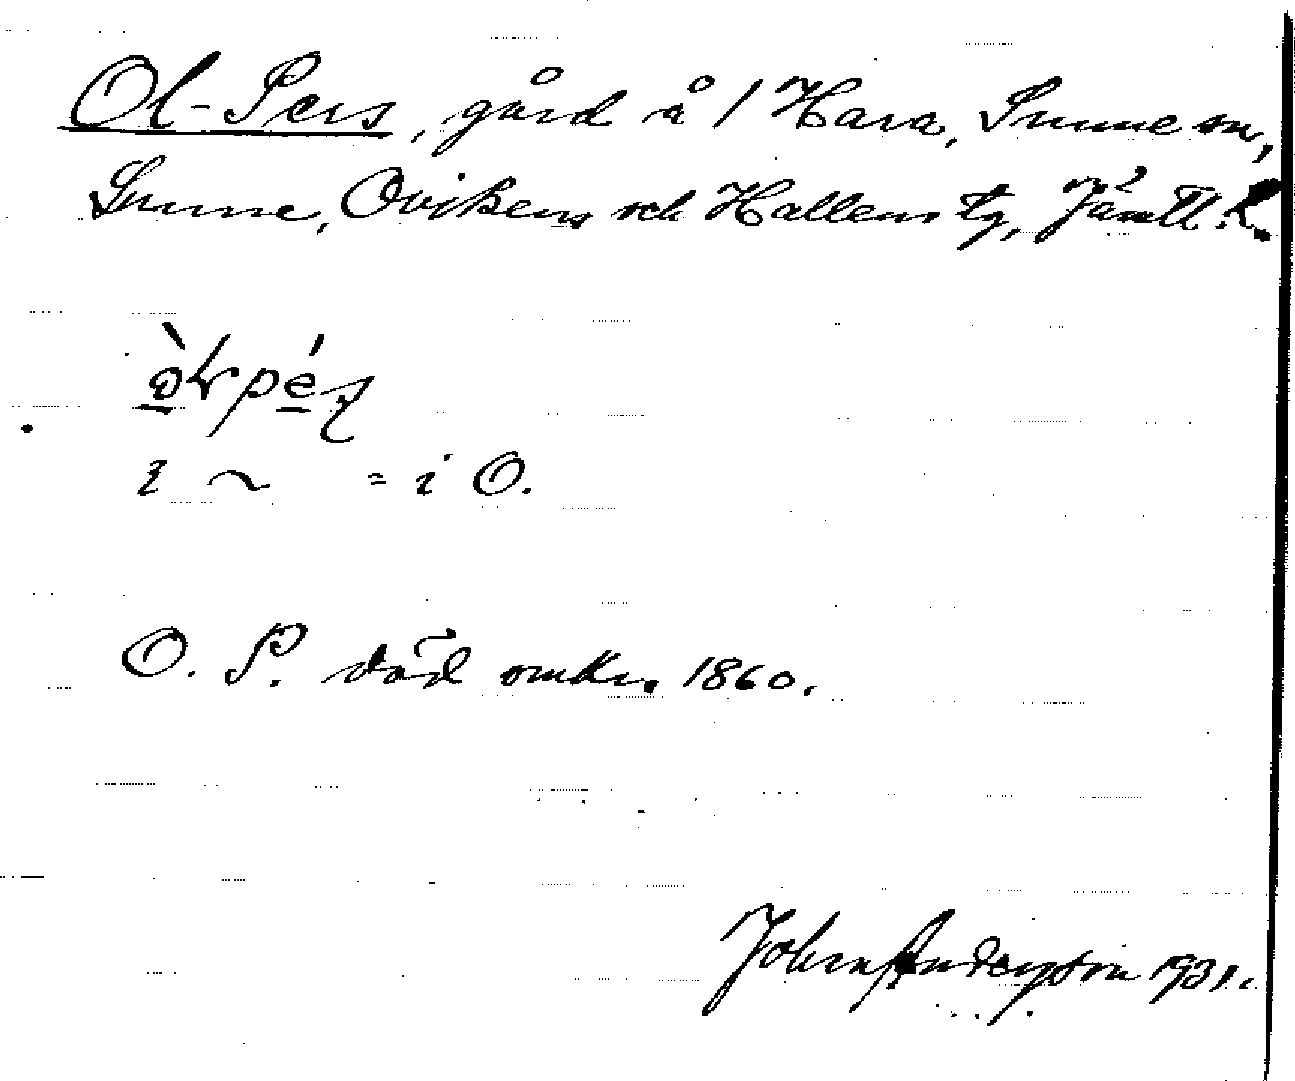 Ol-Pers, gård å 1 Hara, Sunne sn,
Sunne, Ovikens och Hallens tg, Jämtl. l.
i ~ = i O.
O. P. död omkr. 1860.
John Andersson 1931.